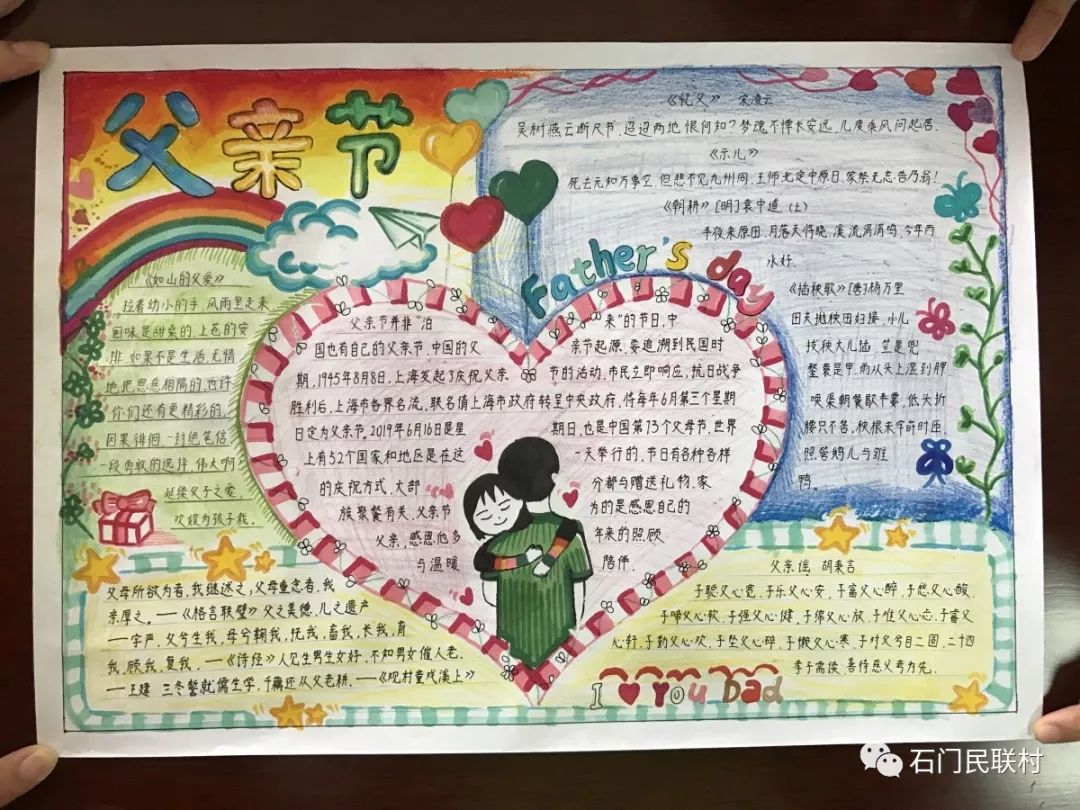 父亲节
《忆父》 宋凌云
吴树燕云断尺书,迢迢两地恨何如?梦魂不惮长安远,几度乘风问起居.
《示儿》
死去元知万事空,但悲不见九州同.王师北定中原日,家祭无忘告乃翁!
《朝耕》[明]袁中道 (上)
半夜来原田,月落天将晓,溪流涓涓鸣,今年雨
水好.
《插秧歌》[唐]杨万里
田夫抛秧田妇接,小儿
拔秧大儿插,笠是兜
鍪蓑是甲,雨从头上湿到胛
唤渠朝餐歇半霎,低头折
腰只不答,秧根未牢莳时匝,
照管鹅儿与雏
鸭.
Father's day
《如山的父爱》
拉着幼小的手,风雨里走来
回味是甜柔的,上苍的安
排 如果不是生活 无情
地把恩怨相隔的,也许
你们还有更精彩的,
因果徘徊 一封绝笔信
一段勇敢的选择 伟大啊
延续父子之爱,
父亲节并非"泊来"的节日,中
国也有自己的父亲节,中国的父亲节起源,要追溯到民国时
期,1945年8月8日,上海发起了庆祝父亲节的活动,市民立即响应,抗日战争
胜利后,上海市各界名流,联名请上海市政府转呈中央政府,将每年6月第三个星期
日定为父亲节,2019年6月16日是星期日,也是中国第73个父母节,世界
上有52个国家和地区是在这一天举行的,节日有各种各样
的庆祝方式,大部分都与赠送礼物,家
族聚餐有关,父亲节为的是感恩自己的
父亲,感恩他多年来的照顾
与温暖陪伴.
父母所欲为者,我继述之,父母重念者,我
亲厚之,——《格言联璧》父之美德,儿之遗产
——宇严,父兮生我,母兮鞠我,抚我,畜我,长我,育
我,顾我,复我,——《诗经》人见生男生女好,不知男女催人老,
——王建 三冬暂就儒生学,千耦还从父老耕,——《观村童戏溪上》
父亲谣 胡秉言
子聪父心宽,子乐父心安,子富父心醉,子怨父心酸,
子啼父心软,子强父心健,子绵父心
李子需读,善待慈父考为先
I ♥ You Dad
石门民联村